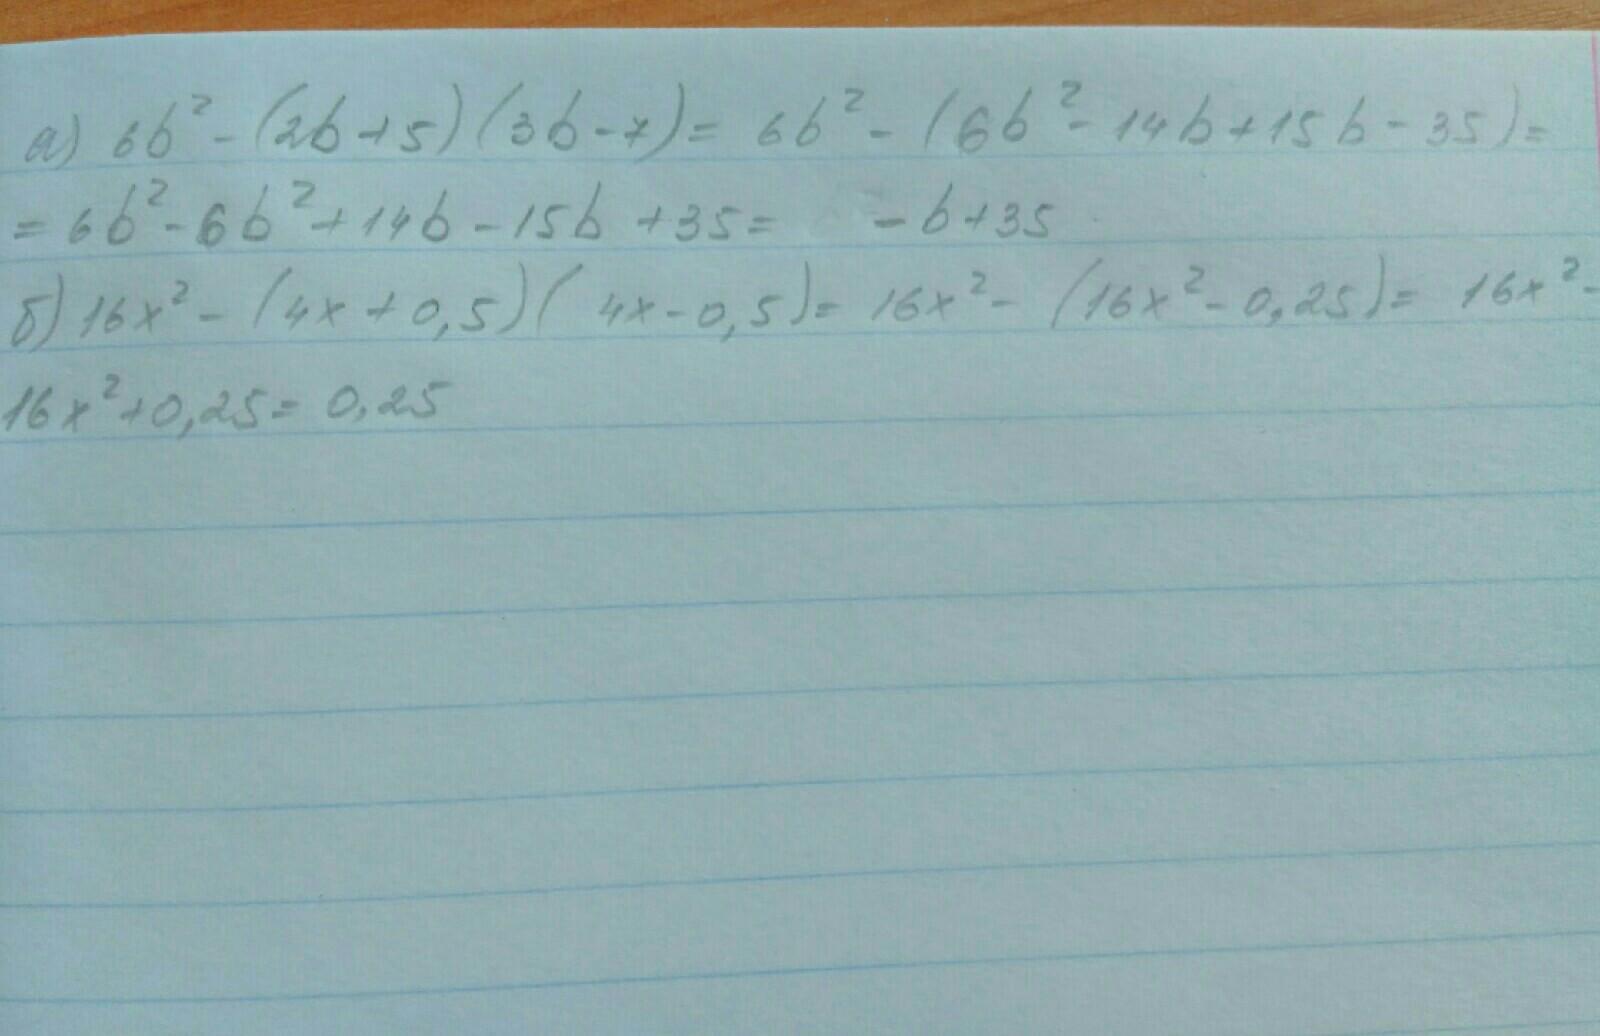 а) 6b² - (2b + 5) (3b - 7) = 6b² - (6b² - 14b + 15b - 35) =
= 6b² - 6b² + 14b - 15b + 35 = - b + 35
б) 16x² - (4x + 0,5) ( 4x - 0,5) = 16x² - (16x² - 0,25) = 16x² -
16x² + 0,25 = 0,25